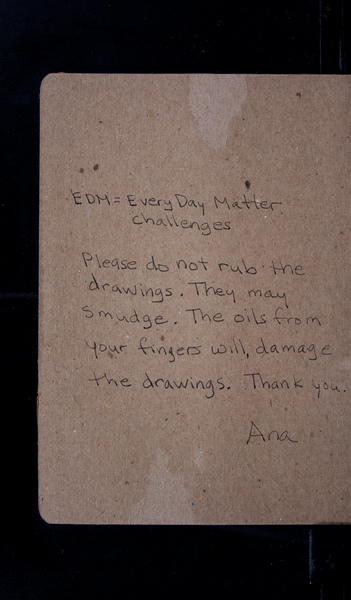 EDM = Every Day Matter
challenges
Please do not rub the
drawings. They may
smudge. The oils from
your fingers will, damage
the drawings. Thank you.
Ana